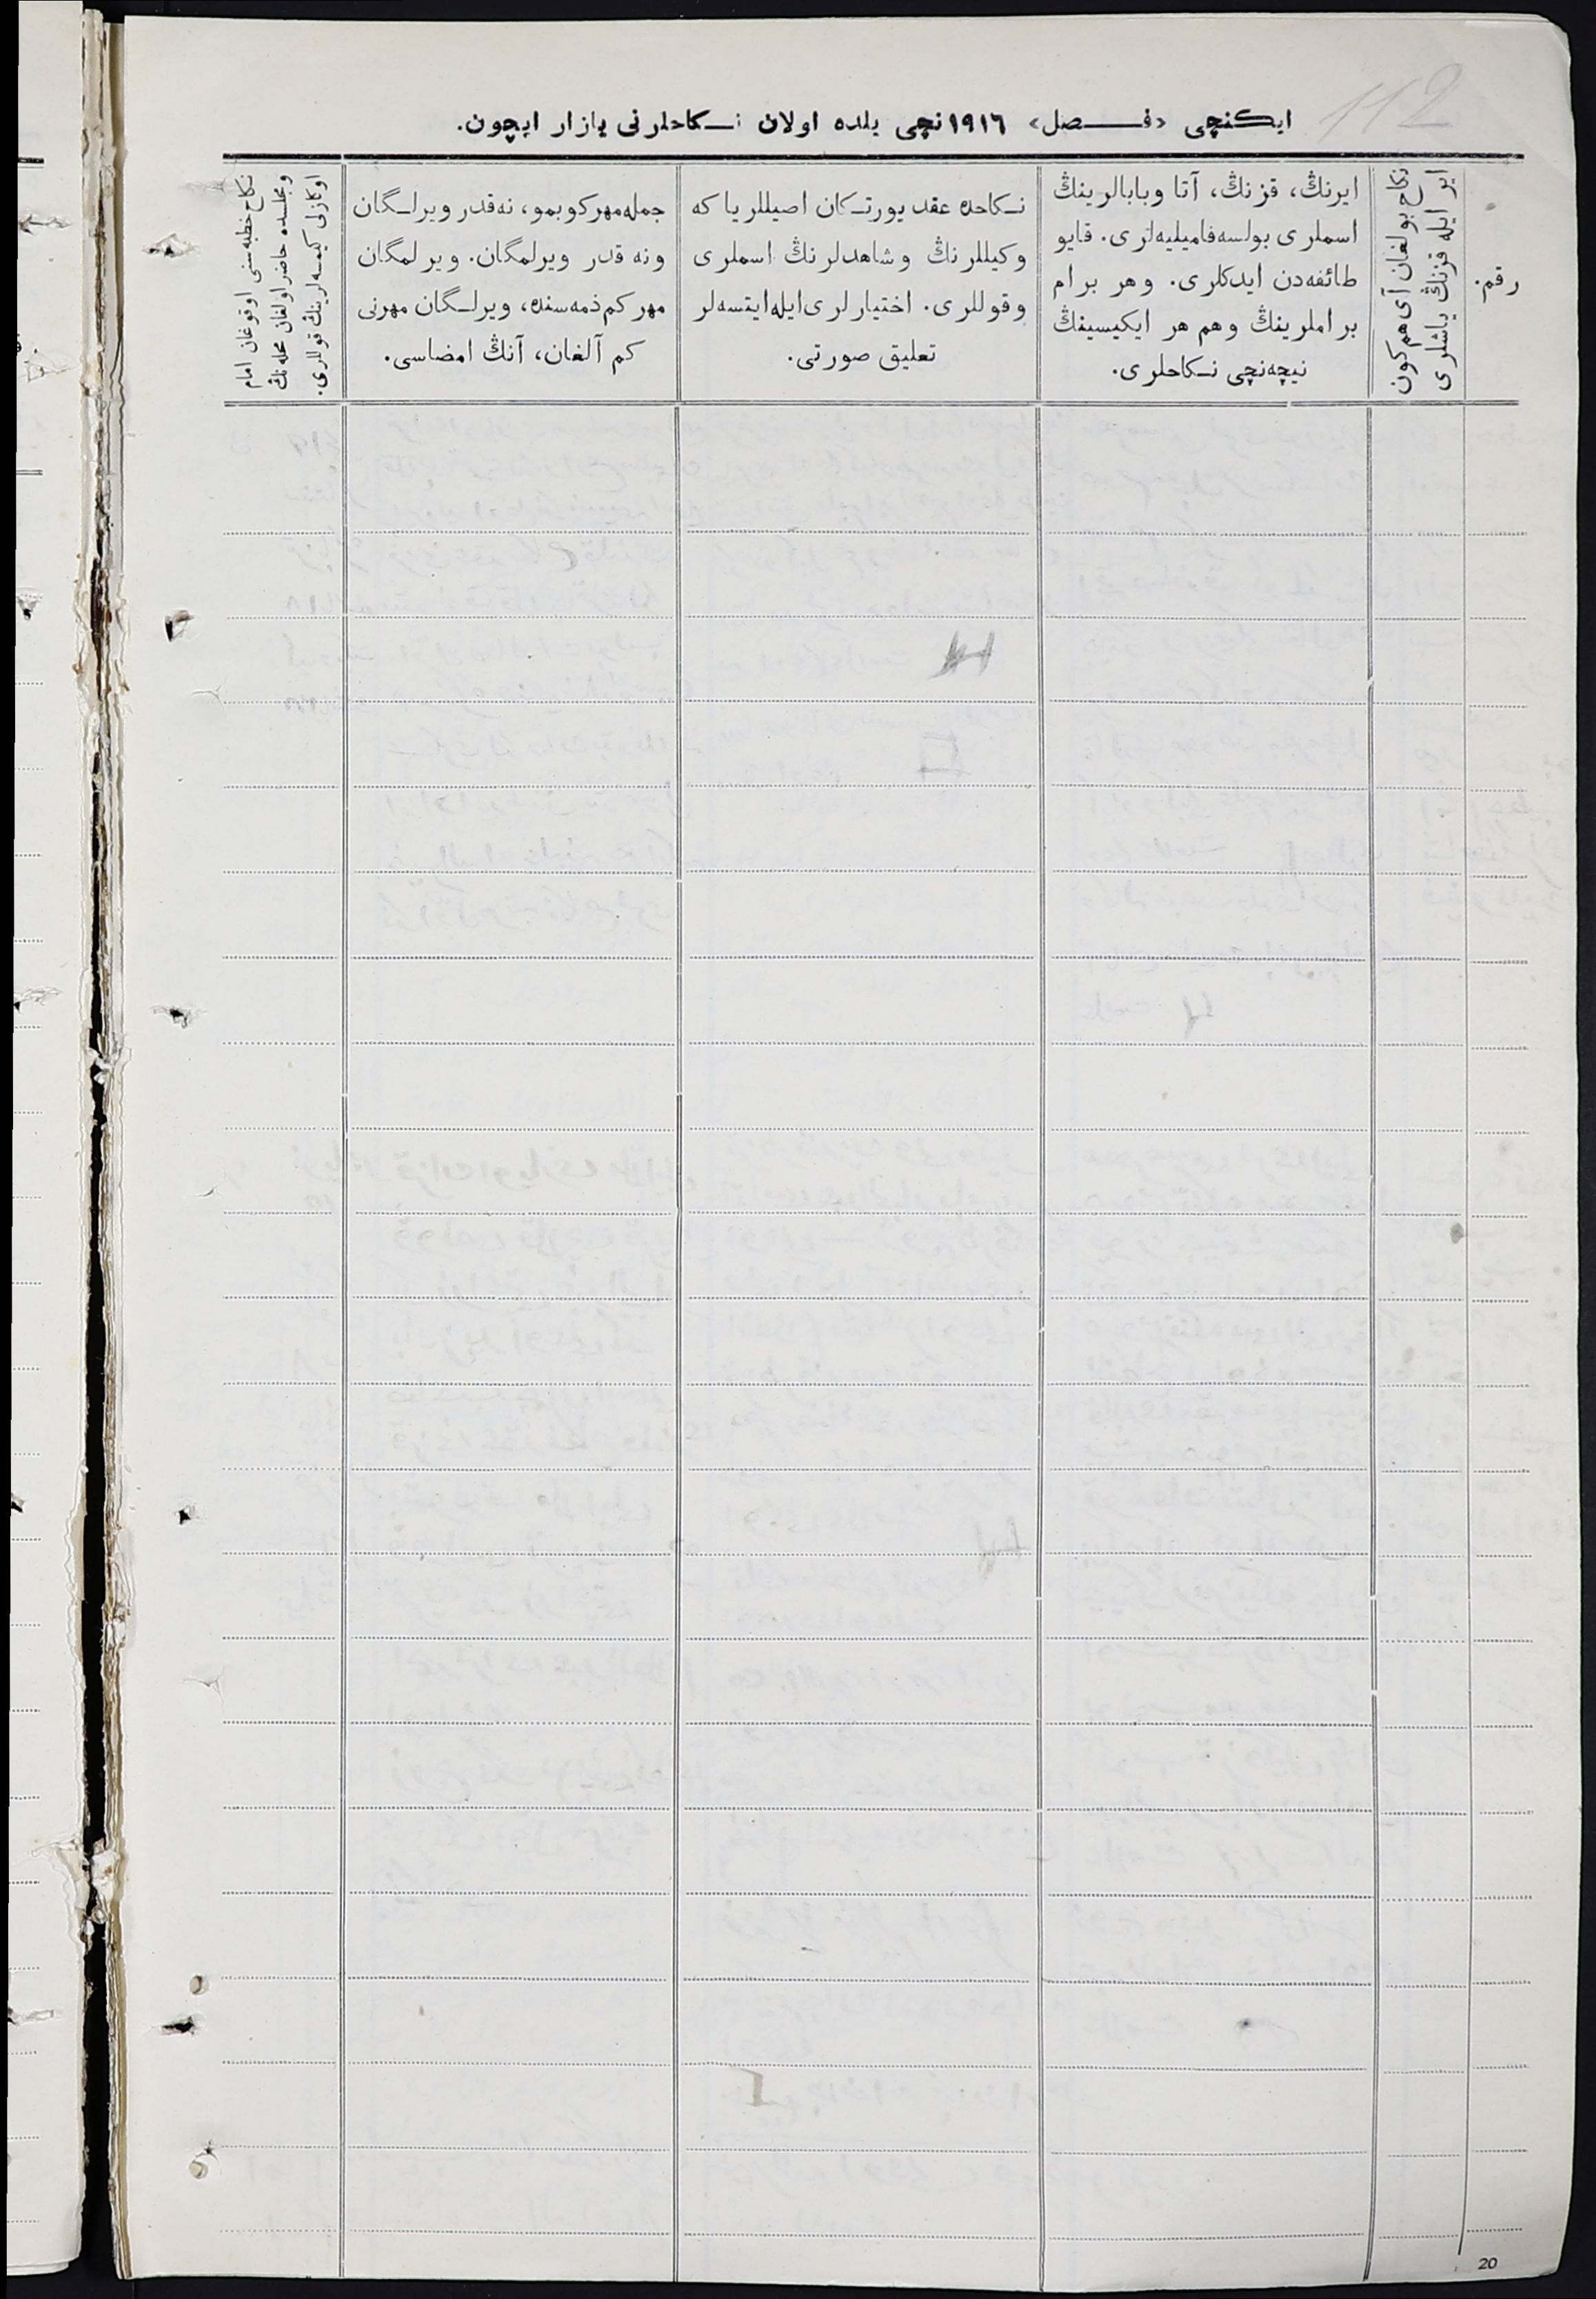 112
ایکنچی «فصل» ١٩١٦نچی یلده اولان نکاحلرنی یازار ایچون.
رقم.
ایر ایله قزنڭ یاشلری
نکاح بولغان آی هم کون
ایرنڭ، قزنڭ، آتا وبابالرینڭ
اسملری بولسه فامیلیه‌لری. قایو
طائفه‌دن ایدکلری. وهر برام
براملرینڭ وهم هر ایکیسینڭ
نیچه‌نچی نکاحلری.
نکاحده عقد یورتکان اصیللر یا که
وکیللرنڭ وشاهدلرنڭ اسملری
وقوللری. اختیارلری ایله ایتسه‌لر
تعلیق صورتی.
جمله مهر کوبمو، نه قدر ویرلگان
ونه قدر ویرلمگان. ویرلمگان
مهر کم ذمه‌سنده، ویرلگان مهرنی
کم آلغان، آنڭ امضاسی.
نکاح خطبه‌سنی اوقوغان امام
ومجلسده حاضر اولغان محله‌نڭ
اوکازنی کیمسه‌لرینڭ قوللری.
20